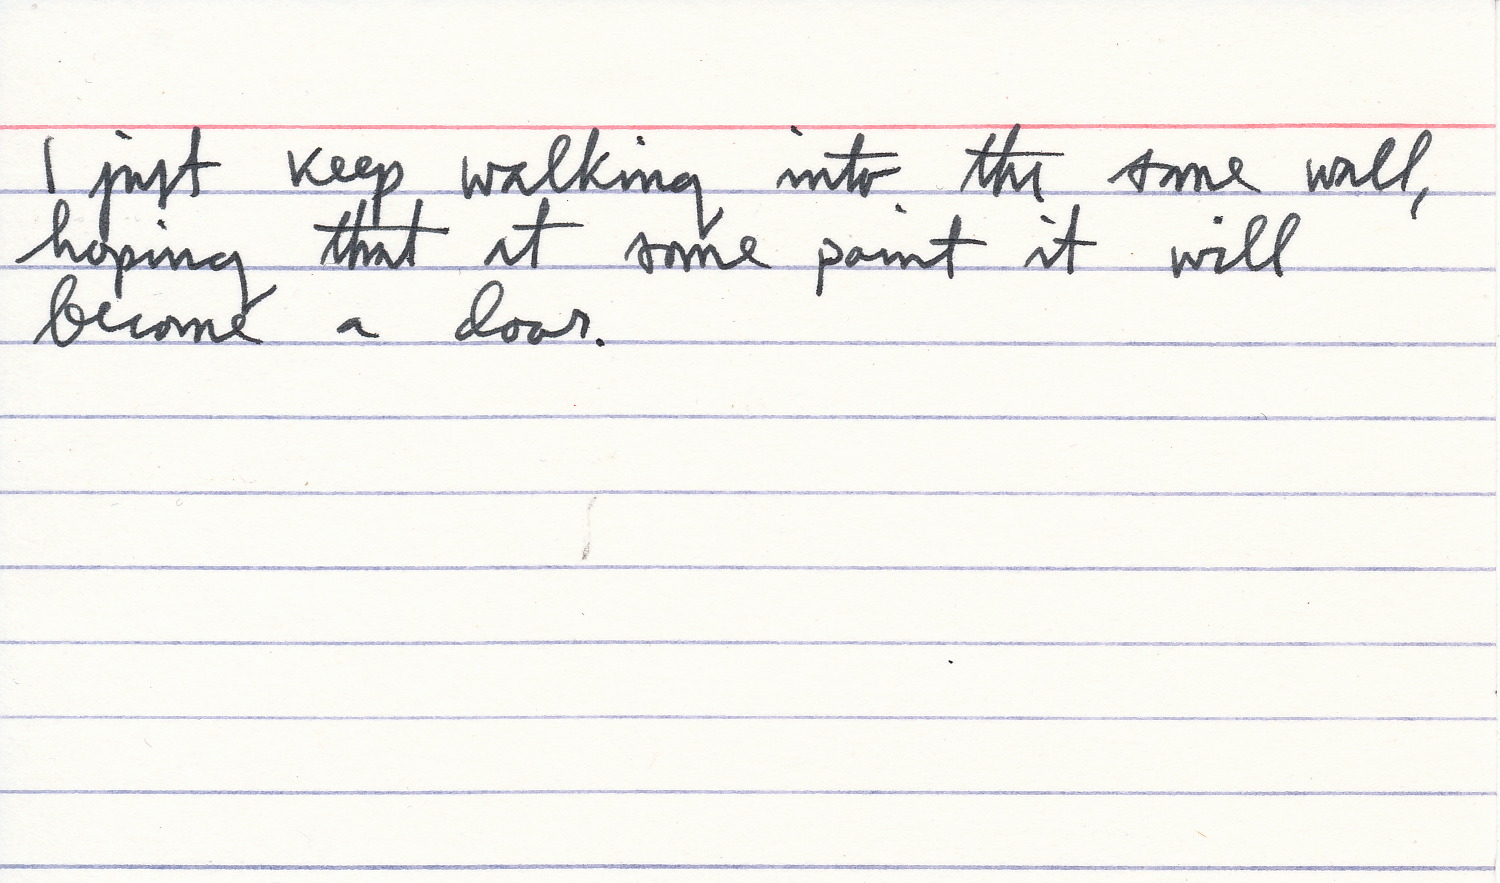 I just keep walking into the same wall,
hoping that at some point it will
become a door.